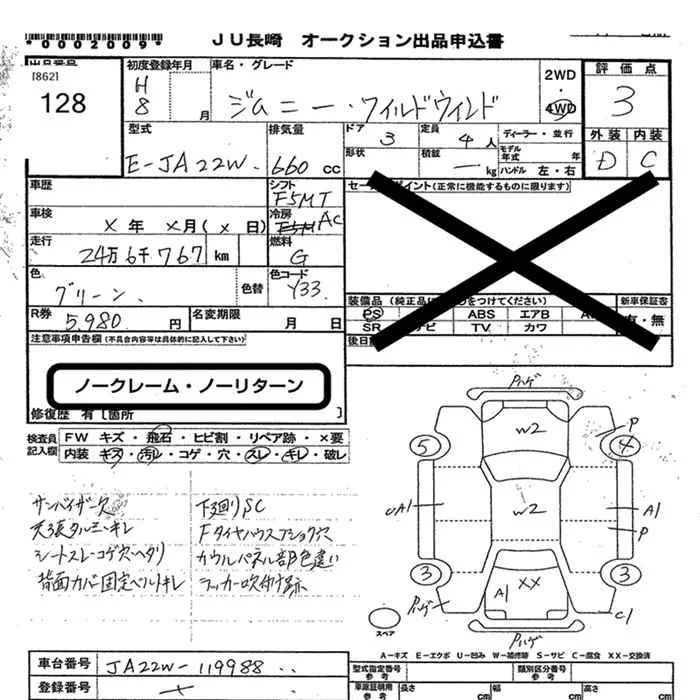 *0002009*
JU長崎 オークション出品申込書
[862]
128
初度登録年月
H
8
月
車名・グレード
ジムニー・ワイルドウインド
2WD
・
4WD
評価点
3
外装 内装
D C
型式
E-JA22W
排気量
660 cc
ドア
3
定員
4人
形状
積載
kg
ディーラー・並行
モデル年式 年
ハンドル 左・右
車歴
シフト
F5MT
車検
× 年 ×月(× 日)
冷房
AC
走行
24万6千767 km
燃料
G
色
グリーン
色替
色コード
Y33
R券
5,980 円
名変期限
月 日
(正常に機能するものに限ります)
装備品
PS
ABS エアB
SR
TV カワ
新車保証書
有・無
注意事項申告欄(不具合内容等は具体的に記入して下さい)
ノークレーム・ノーリターン
修復歴 有 [箇所 ]
検査員記入欄
FW キズ・飛石・ヒビ割・リペア跡・×要
内装 キズ・汚レ・コゲ・穴・スレ・キレ・破レ
サンバイザー欠
天張タルミ・キレ
シートスレ・コゲ穴・ヘタリ
背面カバー固定ベルトキレ
下廻りSC
Fタイヤハウスフショク穴
カウルパネル部色違い
ラッカー吹付け跡
Pハゲ
W2
P
5
4
W2
A1
P
3
3
A1
XX
Pハゲ
C1
Pハゲ
スペア
A-キズ E-エクボ U-凹み W-補修跡 S-サビ C-腐食 XX-交換済
車台番号
JA22W-119988
登録番号
型式指定番号
参考
類別区分番号
参考
車庫証明用
参考
長さ
cm
幅
cm
高さ
cm